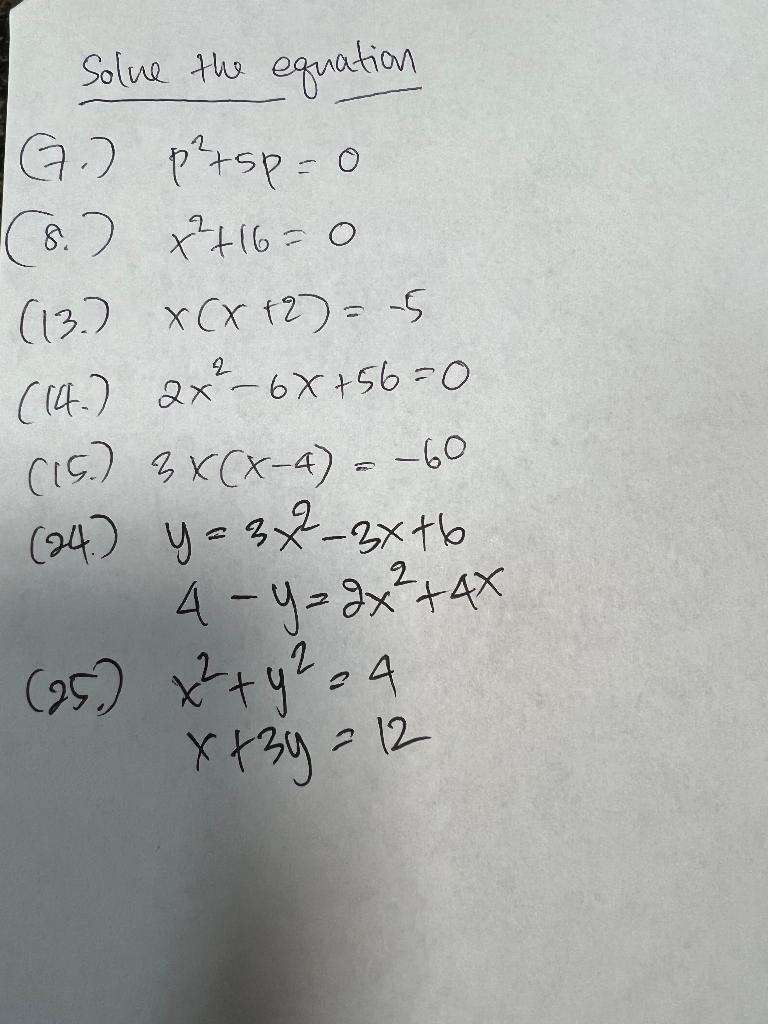 Solve the equation
(7.) p²+5p = 0
(8.) x²+16 = 0
(13.) x(x+2) = -5
(14.) 2x²-6x+56=0
(15.) 3x(x-4) = -60
(24.) y = 3x²-3x+6
4 - y = 2x²+4x
(25.) x²+y² = 4
x+3y = 12